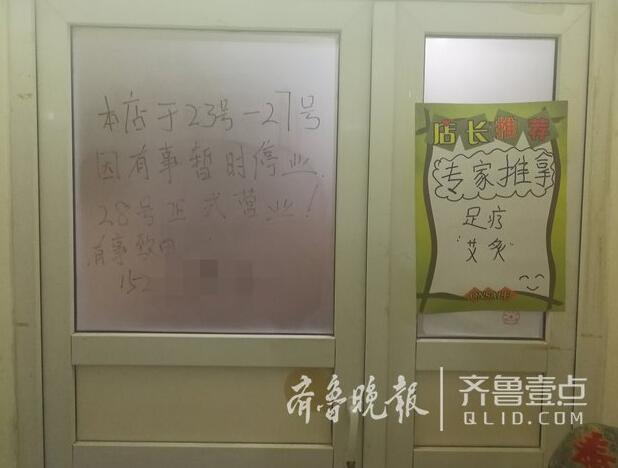 本店于23号-27号
因有事暂时停业.
28号正式营业!
有事致电
152
店长推荐
专家推拿
足疗
"艾灸"
ONSALE
齐鲁晚报
齐鲁壹点
QLID.COM